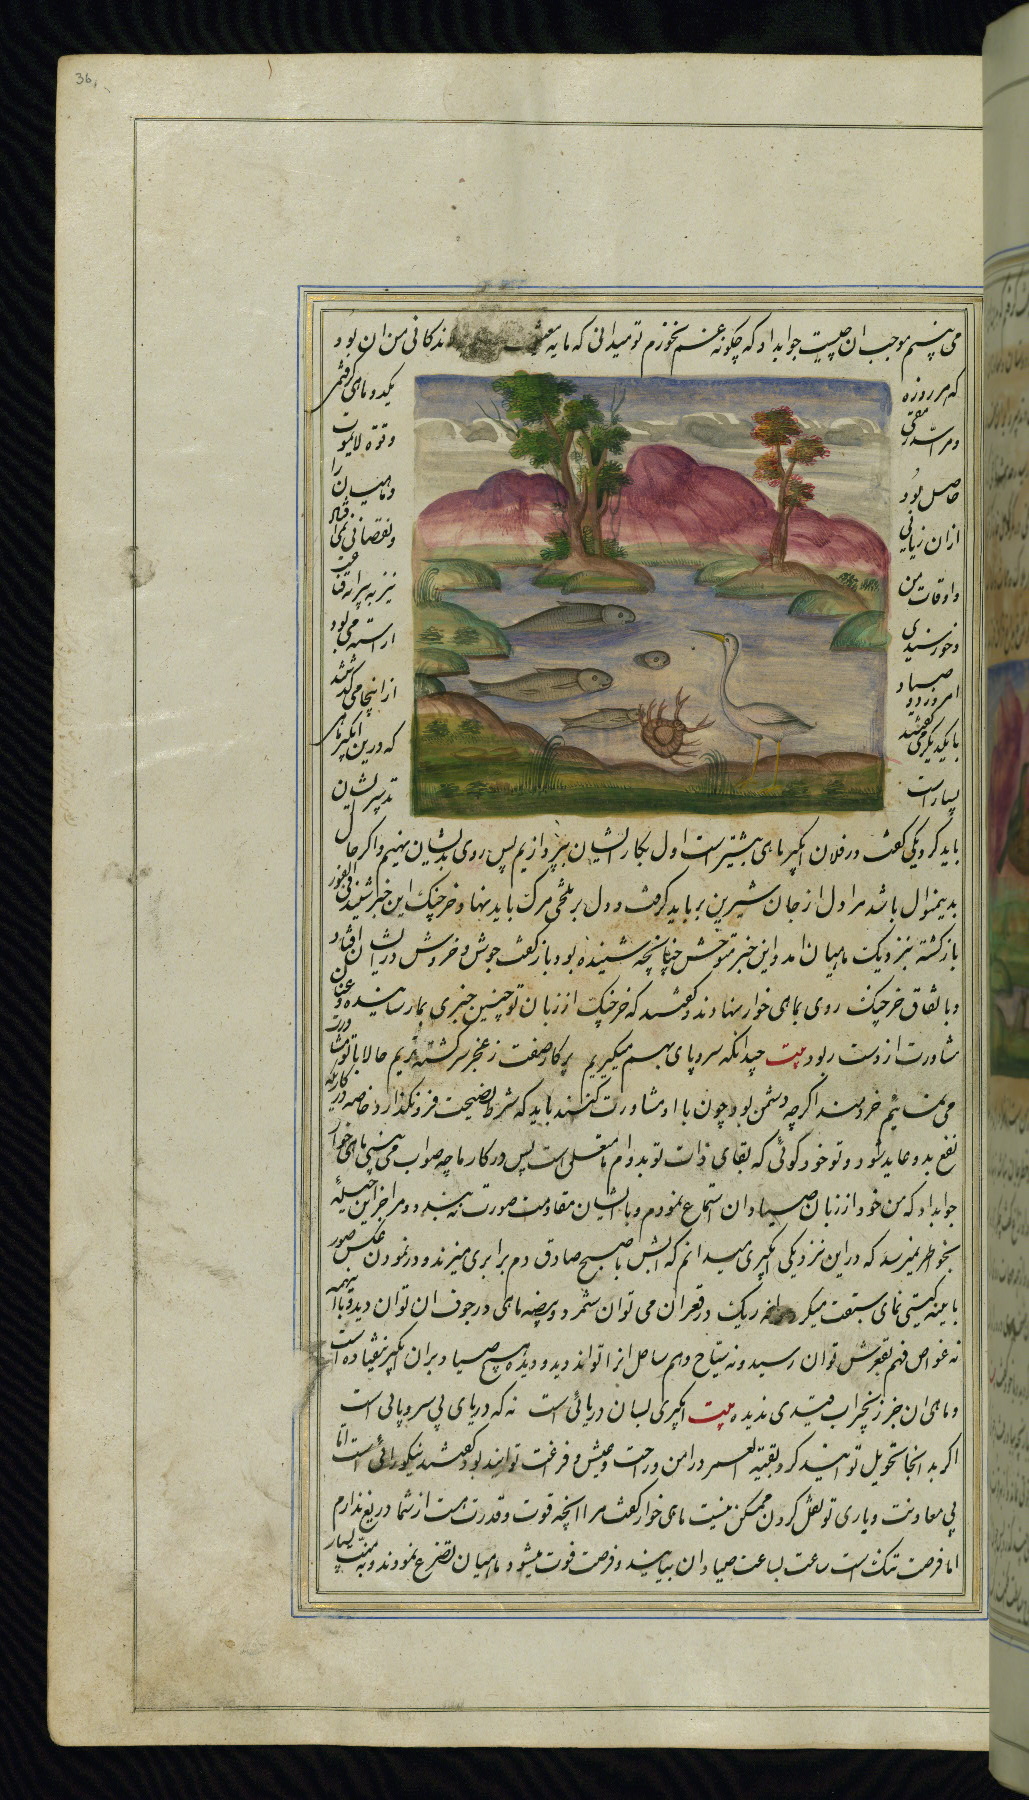 36
می بینم موجب ان چیست جواب داد که چگونه غم نخورم تو میدانی که مایه معیشت زندگانی من ان بود
که هر روزه یکدو ماهی گرفتمی
و مرا سد رمقی و قوه لایموت
حاصل بود و ماهیان را
از ان زیانی و نقصانی نمی
و اوقات من نیز به پیرایه قناعت
و خورسندی اراسته می بود
امروز دو صیاد از اینجا می گذشتند
با یکدیگر می گفتند که درین ابگیر ماهی
بسیار است تدبیر ایشان
باید کرد یکی گفت در فلان ابگیر ماهی بیشتر است اول بکار ایشان بپردازیم پس روی بدیشان نهیم و اگر حال
بدینمنوال باشد مرا دل از جان شیرین برباید گرفت و دل بر تلخی مرگ باید نهاد خرچنگ این خبر شنید فی الفور
بازگشته بنزدیک ماهیان امد و این خبر متوحش چنانچه شنیده بود بازگفت جوش و خروش در ایشان افتاد
و باتفاق خرچنگ روی بماهی خوار نهادند و گفتند که خرچنگ از زبان تو چنین خبری بما رسانیده و عنان
مشاورت از دست ربود بیت چندانکه سر و پای بهم میگیریم پرگار صفت ز عجز سرگشته تریم حالا با تو مشاورت
می نمائیم خردمند اگرچه دشمن بود چون با او مشاورت کنند باید که شرط نصیحت فرونگذارد خاصه در کاری که
نفع بدو عاید شود و تو خود گوئی که بقای ذات تو بدوام ما متعلق است پس در کار ما چه صواب می بینی ماهی خوار
جواب داد که من خود از زبان صیادان استماع نمودم و با ایشان مقاومت صورت نه بندد و مرا جز این حیلهٔ
بخواطر نمیرسد که در این نزدیکی ابگیری میدانم که ابش با صبح صادق دم برابری میزند و در نمودن عکس صور
با ایینه گیتی نمای سبقت میگیرد دانه ریک در قعر ان می توان شمرد و بیضه ماهی در جوف ان توان دید و با اینهمه
نه غواص فهم بقعرش توان رسید و نه سیاح وهم ساحل انرا تواند دید و دیده هیچ صیاد بران ابگیر نیفتاده است
و ماهی ان جز زنجیر اب قیدی ندیده بیت ابگیری بسان دریائی است نه که دریای بی سر و پائی است
اگر بد انجا تحویل توانید کرد بقیة العمر در امن و راحت و عیش و فراغت توانید بود گفتند نیکو رائی است اما
بی معاونت و یاری تو نقل کردن ممکن نیست ماهی خوار گفت مرا انچه قوت و قدرت هست از شما دریغ ندارم
اما فرصت تنک است ساعت بساعت صیادان بیایند و فرصت فوت میشود ماهیان تضرع نمودند و به منت بسیار